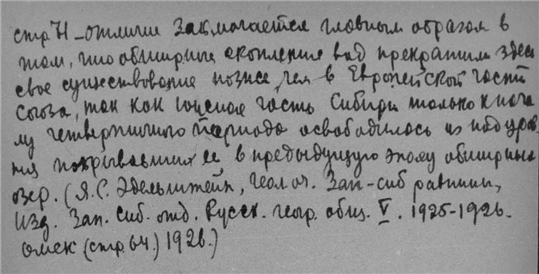 стр 71 – отличие заключается главным образом в
том, что обширные скопления вод прекратили здесь
свое существование позже, чем в Европейской части
Союза, так как южная часть Сибири только к нача
лу четвертичного периода освободилась из под уров
ня покрывавших ее в предыдущую эпоху обширных
озер. (Я.С. Эдельштейн, геол. оч. Зап-сиб равнины,
Изд. Зап. Сиб. отд. Русск. геогр. общ. V. 1925-1926.
Омск (стр 64.) 1926.)